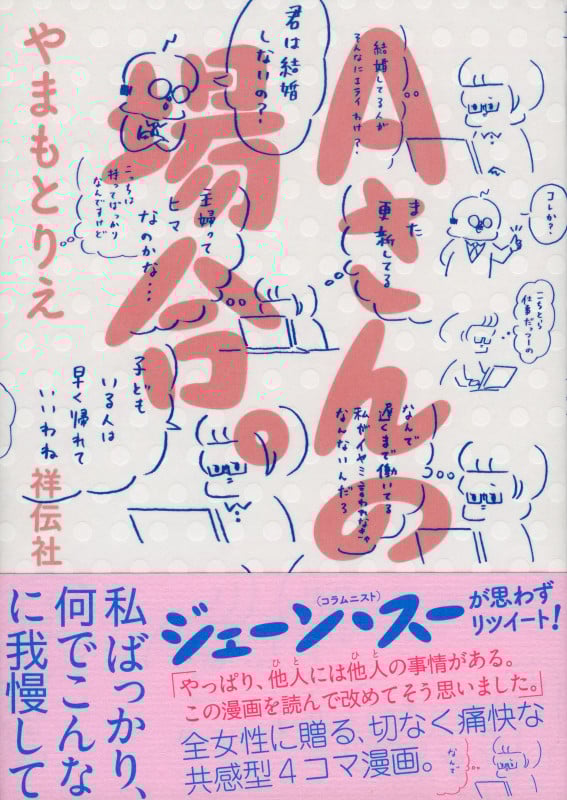 Aさんの
場合。
やまもとりえ
祥伝社
結婚してる人が
そんなにエライわけ?
君は結婚
しないの?
コレか?
また
更新してる
主婦って
ヒマ
なのかな…
こっちは
待ってばっかり
なんですけど
こちとら
仕事だっつーの
なんで
遅くまで働いてる
私がイヤミ言われなきゃ
なんないんだろ
子ども
いる人は
早く帰れて
いいわね
私ばっかり、
何でこんな
に我慢して
ジェーン・スー
(コラムニスト)
が思わず
リツイート!
「やっぱり、他人には他人の事情がある。
この漫画を読んで改めてそう思いました。」
全女性に贈る、切なく痛快な
共感型4コマ漫画。
なんで